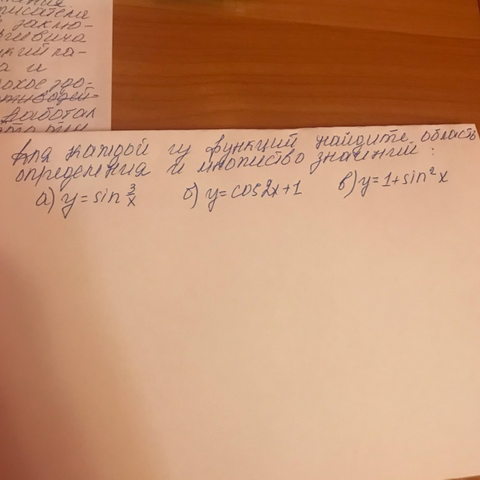 писателя
заклю-
евича
а и
Для каждой из функций найдите область
определения и множество значений :
а) y = sin 3/x б) y = cos2x+1 в) y = 1+sin²x